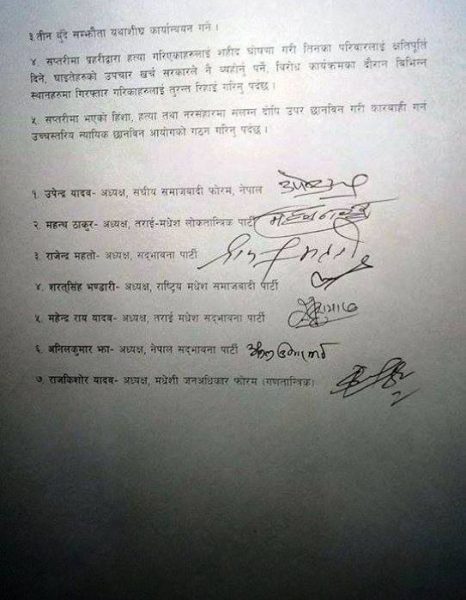 ३.तीन बुँदे सम्झौता यथाशीघ्र कार्यान्वयन गर्ने ।
४. सप्तरीमा प्रहरीद्वारा हत्या गरिएकाहरुलाई शहीद घोषणा गरी तिनका परिवारलाई क्षतिपूर्ति
दिने, घाइतेहरुको उपचार खर्च सरकारले नै व्यहोर्नु पर्ने, विरोध कार्यक्रमका दौरान विभिन्न
स्थानहरुमा गिरफ्तार गरिकाहरुलाई तुरन्त रिहाई गरिनु पर्दछ ।
५. सप्तरीमा भएको हिंशा, हत्या तथा नरसंहारमा संलग्न दोषि उपर छानविन गरी कारबाही गर्न
उच्चस्तरिय न्यायिक छानविन आयोगको गठन गरिनु पर्दछ ।
१. उपेन्द्र यादव- अध्यक्ष, संघीय समाजवादी फोरम, नेपाल
२. महन्थ ठाकुर- अध्यक्ष, तराई-मधेश लोकतान्त्रिक पार्टी
३ राजेन्द्र महतो- अध्यक्ष, सद्भावना पार्टी
४. शरत्सिंह भण्डारी- अध्यक्ष, राष्ट्रिय मधेश समाजवादी पार्टी
५. महेन्द्र राय यादव- अध्यक्ष, तराई मधेश सद्भावना पार्टी
६. अनिलकुमार झा- अध्यक्ष, नेपाल सद्भावना पार्टी
७. राजकिशोर यादव- अध्यक्ष, मधेशी जनअधिकार फोरम (गणतान्त्रिक)